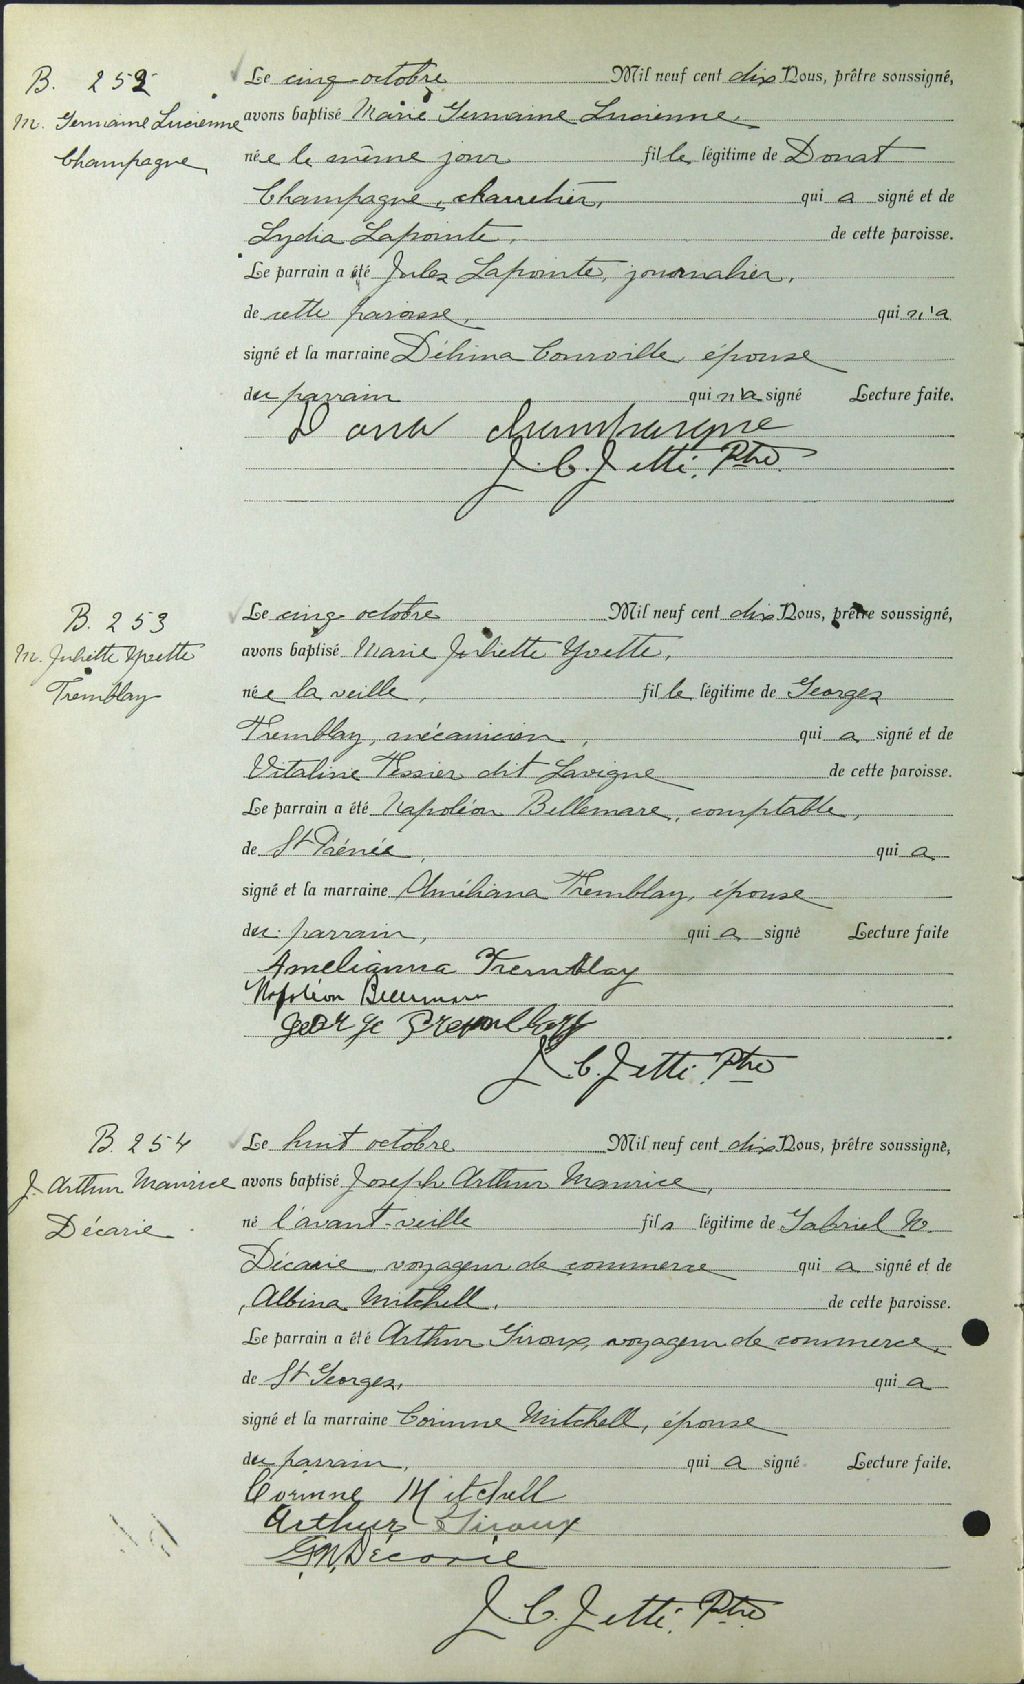 B. 252
M. Germaine Lucienne
Champagne
Le cinq octobre Mil neuf cent dix Nous, prêtre soussigné,
avons baptisé Marie Germaine Lucienne,
née le même jour fille légitime de Donat
Champagne, charretier, qui a signé et de
Lydia Lapointe, de cette paroisse.
Le parrain a été Jules Lapointe, journalier,
de cette paroisse, qui n'a
signé et la marraine Délima Courville, épouse
du parrain qui n'a signé Lecture faite.
Dona champagne
J. C. Jetté, Ptre
B. 253
M. Juliette Yvette
Tremblay
Le cinq octobre Mil neuf cent dix Nous, prêtre soussigné,
avons baptisé Marie Juliette Yvette,
née la veille, fille légitime de Georges
Tremblay, mécanicien, qui a signé et de
Vitaline Tessier dit Lavigne de cette paroisse.
Le parrain a été Napoléon Bellemare, comptable,
de St Irénée, qui a
signé et la marraine Améliana Tremblay, épouse
du parrain, qui a signé Lecture faite
Amelianna Tremblay
Napoléon Bellemare
George Tremblay
J. C. Jetté, Ptre
B. 254
J. Arthur Maurice
Décarie
Le huit octobre Mil neuf cent dix Nous, prêtre soussigné,
avons baptisé Joseph Arthur Maurice,
né l'avant-veille fils légitime de Gabriel N.
Décarie voyageur de commerce qui a signé et de
Albina Mitchell, de cette paroisse.
Le parrain a été Arthur Giroux, voyageur de commerce,
de St Georges, qui a
signé et la marraine Corinne Mitchell, épouse
du parrain, qui a signé Lecture faite.
Corinne Mitchell
Arthur Giroux
G.N. Décarie
J. C. Jetté, Ptre